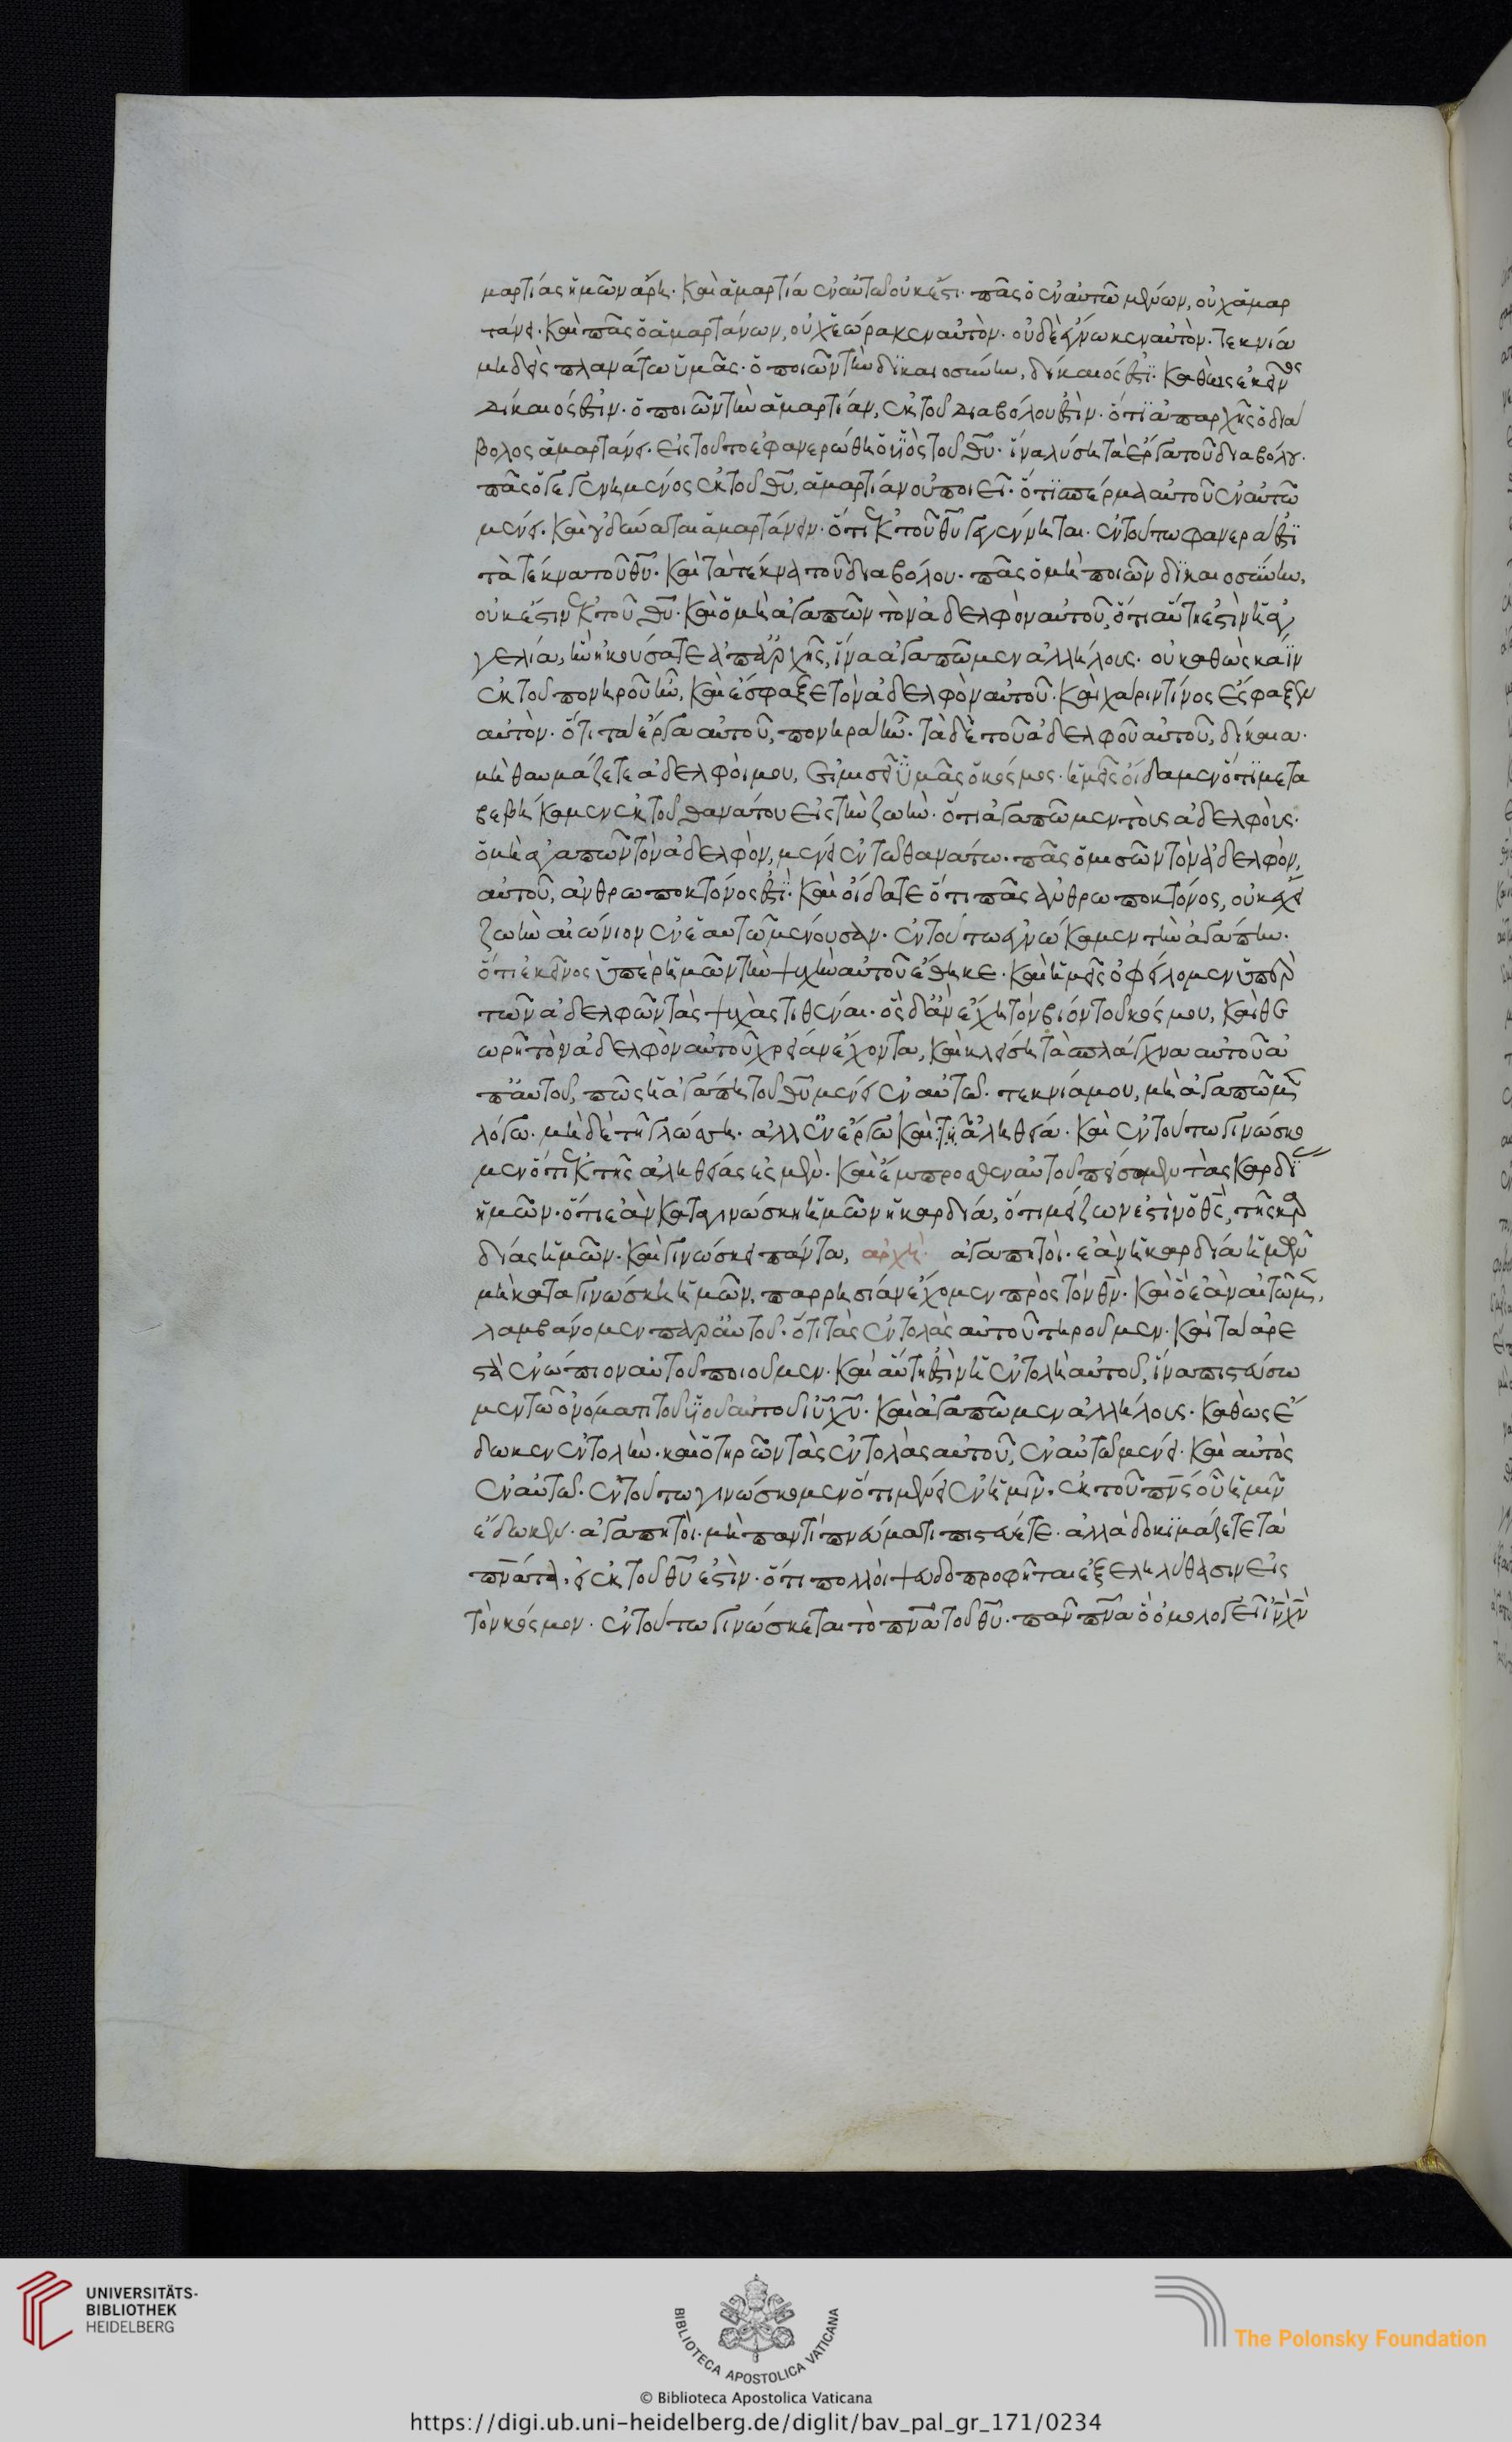 μαρτίας ἡμῶν ἄρη· καὶ ἁμαρτία ἐν αὐτῶ οὐκ ἔστι· πᾶς ὁ ἐν αὐτῶ μένων, οὐχ ἁμαρ
τάνει· καὶ πᾶς ὁ ἁμαρτάνων, οὐχ ἑώρακεν αὐτὸν· οὐδὲ ἔγνωκεν αὐτὸν· τεκνία
μηδεὶς πλανάτω ὑμᾶς· ὁ ποιῶν τὴν δικαιοσύνην, δίκαιός ἐστι· καθὼς ἐκεῖνος
δίκαιός ἐστιν· ὁ ποιῶν τὴν ἁμαρτίαν, ἐκ τοῦ διαβόλου ἐστὶν· ὅτι ἀπαρχῆς ὁ διά
βολος ἁμαρτάνει· εἰς τοῦτο ἐφανερώθη ὁ υἱὸς τοῦ θυ· ἵνα λύση τὰ ἔργα τοῦ διαβόλου·
πᾶς ὁ γεγενημένος ἐκ τοῦ θυ, ἁμαρτίαν οὐ ποιεῖ· ὅτι σπέρμα αὐτοῦ ἐν αὐτῶ
μένει· καὶ οὐ δύναται ἁμαρτάνειν· ὅτι ἐκ τοῦ θυ γεγέννηται· ἐν τούτω φανερά ἐστι
τὰ τέκνα τοῦ θυ· καὶ τὰ τέκνα τοῦ διαβόλου· πᾶς ὁ μὴ ποιῶν δικαιοσύνην,
οὐκ ἔστιν ἐκ τοῦ θυ· καὶ ὁ μὴ ἀγαπῶν τὸν ἀδελφὸν αὐτοῦ, ὅτι αὕτη ἐστὶν ἡ ἀγ
γελία, ἣν ἠκούσατε ἀπαρχῆς, ἵνα ἀγαπῶμεν ἀλλήλους· οὐ καθὼς καϊν
ἐκ τοῦ πονηροῦ ἦν, καὶ ἔσφαξε τὸν ἀδελφὸν αὐτοῦ· καὶ χάριν τίνος ἔσφαξεν
αὐτὸν· ὅτι τὰ ἔργα αὐτοῦ, πονηρὰ ἦν· τὰ δὲ τοῦ ἀδελφοῦ αὐτοῦ, δίκαια·
μὴ θαυμάζετε ἀδελφοί μου, εἰ μισεῖ ὑμᾶς ὁ κόσμος· ἡμεῖς οἴδαμεν ὅτι μετα
βεβήκαμεν ἐκ τοῦ θανάτου εἰς τὴν ζωὴν· ὅτι ἀγαπῶμεν τοὺς ἀδελφοὺς·
ὁ μὴ ἀγαπῶν τὸν ἀδελφὸν, μένει ἐν τῶ θανάτω· πᾶς ὁ μισῶν τὸν ἀδελφὸν
αὐτοῦ, ἀνθρωποκτόνος ἐστὶ· καὶ οἴδατε ὅτι πᾶς ἀνθρωποκτόνος, οὐκ ἔχει
ζωὴν αἰώνιον ἐν ἑαυτῶ μένουσαν· ἐν τούτω ἐγνώκαμεν τὴν ἀγάπην·
ὅτι ἐκεῖνος ὑπὲρ ἡμῶν τὴν ψυχὴν αὐτοῦ ἔθηκε· καὶ ἡμεῖς ὀφείλομεν ὑπὲρ
τῶν ἀδελφῶν τὰς ψυχὰς τιθέναι· ὃς δ' ἂν ἔχη τὸν βίον τοῦ κόσμου, καὶ θε
ωρῆ τὸν ἀδελφὸν αὐτοῦ χρείαν ἔχοντα, καὶ κλείση τὰ σπλάγχνα αὐτοῦ ἀ
π' αὐτοῦ, πῶς ἡ ἀγάπη τοῦ θυ μένει ἐν αὐτῶ· τεκνία μου, μὴ ἀγαπῶμεν
λόγω· μηδὲ τῆ γλώσση· ἀλλ' ἐν ἔργω καὶ τῆ ἀληθεία· καὶ ἐν τούτω γινώσκο
μεν ὅτι ἐκ τῆς ἀληθείας ἐσμὲν· καὶ ἔμπροσθεν αὐτοῦ πείσομεν τὰς καρδί
ἡμῶν· ὅτι ἐὰν καταγινώσκη ἡμῶν ἡ καρδία, ὅτι μείζων ἐστὶν ὁ θς, τῆς καρ
δίας ἡμῶν· καὶ γινώσκει πάντα, ἀρχὴ· ἀγαπητοὶ· ἐὰν ἡ καρδία ἡμῶν
μὴ καταγινώσκη ἡμῶν, παρρησίαν ἔχομεν πρὸς τὸν θν· καὶ ὃ ἐὰν αἰτῶμεν,
λαμβάνομεν παρ' αὐτοῦ· ὅτι τὰς ἐντολὰς αὐτοῦ τηροῦμεν· καὶ τὰ ἀρε
στὰ ἐνώπιον αὐτοῦ ποιοῦμεν· καὶ αὕτη ἐστὶν ἡ ἐντολὴ αὐτοῦ, ἵνα πιστεύσω
μεν τῶ ὀνόματι τοῦ υἱοῦ αὐτοῦ ιυ χυ· καὶ ἀγαπῶμεν ἀλλήλους· καθὼς ἔ
δωκεν ἐντολὴν· καὶ ὁ τηρῶν τὰς ἐντολὰς αὐτοῦ, ἐν αὐτῶ μένει· καὶ αὐτὸς
ἐν αὐτῶ· ἐν τούτω γινώσκομεν ὅτι μένει ἐν ἡμῖν· ἐκ τοῦ πνς οὗ ἡμῖν
ἔδωκεν· ἀγαπητοὶ· μὴ παντὶ πνεύματι πιστεύετε· ἀλλὰ δοκιμάζετε τὰ
πνάτα, εἰ ἐκ τοῦ θυ ἐστὶν· ὅτι πολλοὶ ψευδοπροφῆται ἐξεληλύθασιν εἰς
τὸν κόσμον· ἐν τούτω γινώσκεται τὸ πνα τοῦ θυ· πᾶν πνα ὃ ὁμολογεῖ ιν χν
UNIVERSITÄTS-
BIBLIOTHEK
HEIDELBERG
BIBLIOTECA APOSTOLICA VATICANA
The Polonsky Foundation
© Biblioteca Apostolica Vaticana
https://digi.ub.uni-heidelberg.de/diglit/bav_pal_gr_171/0234